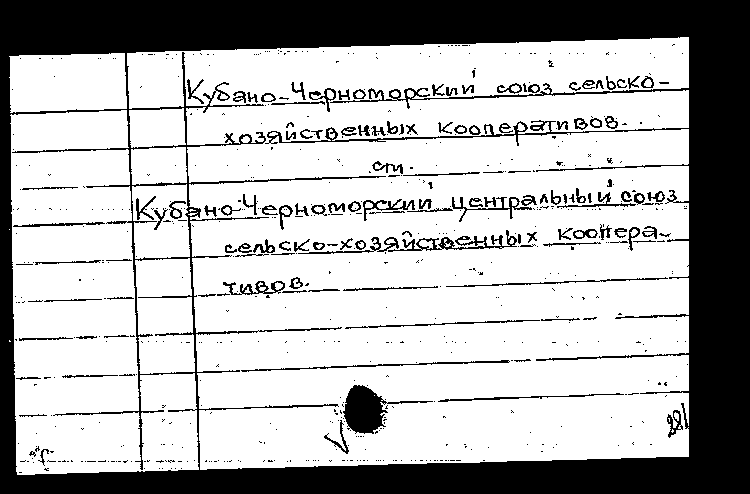 Кубано-Черноморский союз сельско-
хозяйственных кооперативов.
см.
Кубано-Черноморский центральный союз
сельско-хозяйственных коопера-
тивов.